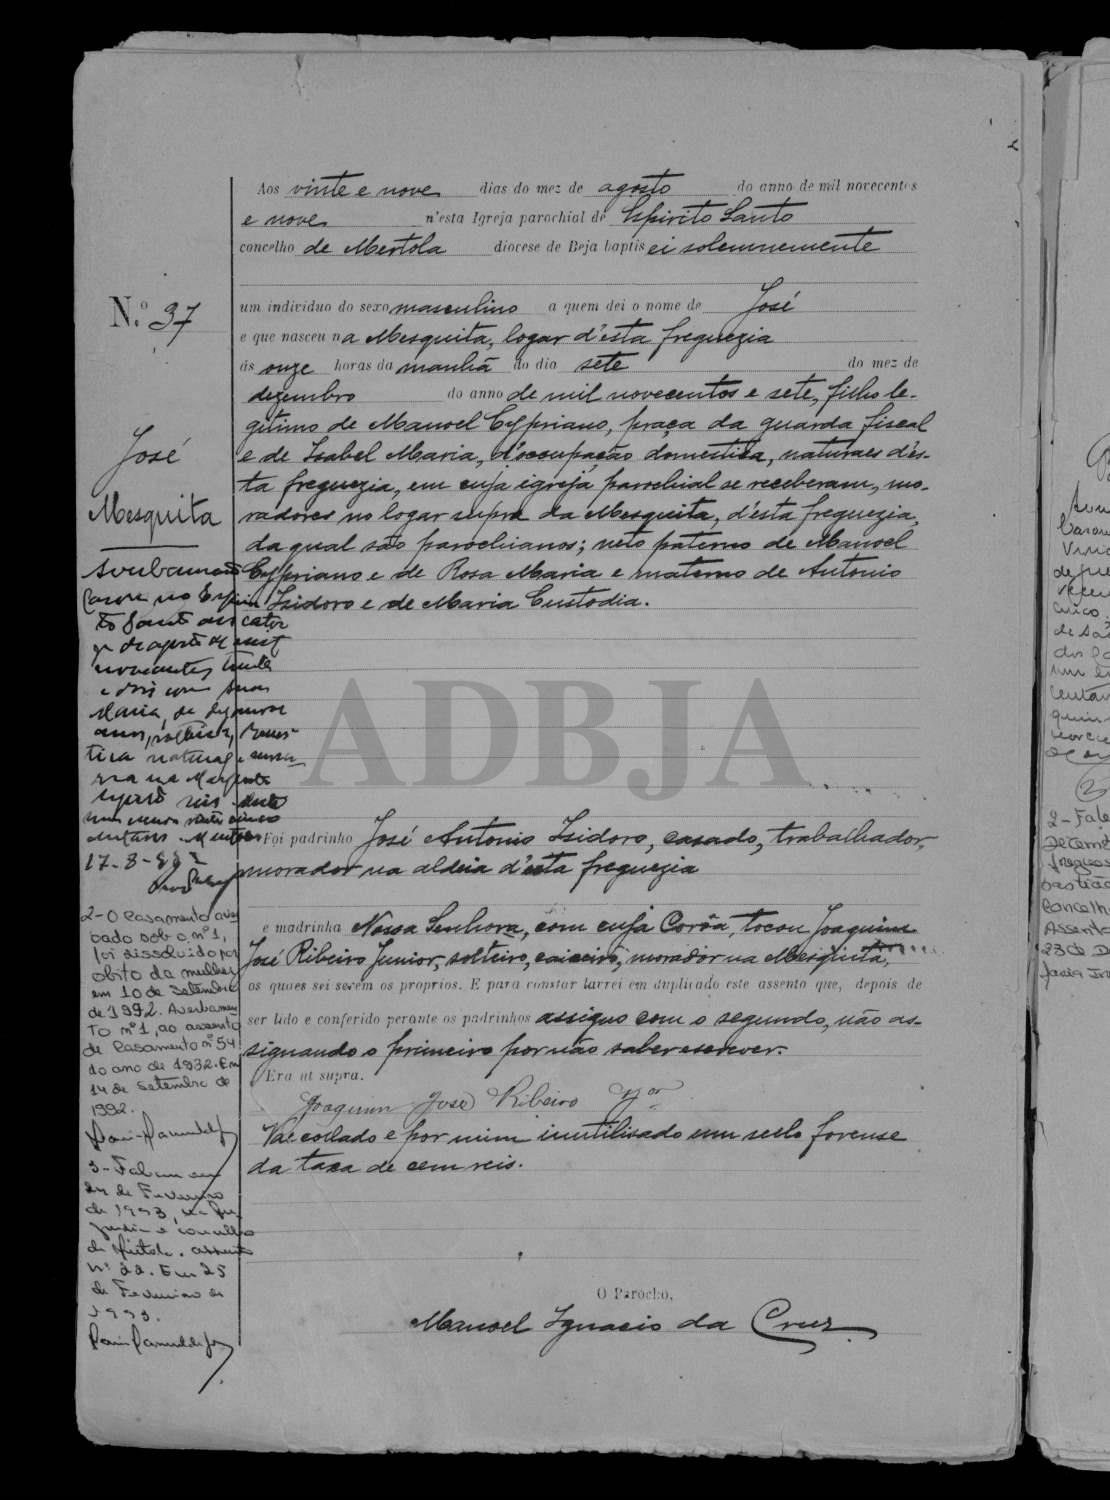 Aos vinte e nove dias do mez de agosto do anno de mil novecentos
e nove n'esta Igreja parochial de Espirito Santo
concelho de Mertola diocese de Beja baptisei solemnemente
N.º 37
um individuo do sexo masculino a quem dei o nome de José
e que nasceu na Mesquita, logar d'esta freguezia
ás onze horas da manhã do dia sete do mez de
dezembro do anno de mil novecentos e sete, filho le-
gitimo de Manoel Cypriano, praça da guarda fiscal
e de Isabel Maria, d'occupação domestica, naturaes d'es-
ta freguezia, em cuja igreja parochial se receberam, mo-
radores no logar supra da Mesquita, d'esta freguezia,
da qual são parochianos; neto paterno de Manoel
Cypriano e de Rosa Maria e materno de Antonio
Isidoro e de Maria Custodia.
Foi padrinho José Antonio Isidoro, casado, trabalhador,
morador na aldeia d'esta freguezia
e madrinha Nossa Senhora, com cuja Corôa, tocou Joaquim
José Ribeiro Junior, solteiro, caixeiro, morador na Mesquita,
os quaes sei serem os proprios. E para constar lavrei em duplicado este assento que, depois de
ser lido e conferido perante os padrinhos assigno com o segundo, não as-
signando o primeiro por não saber escrever.
Era ut supra.
Joaquim José Ribeiro Jor
Vae collado e por mim inutilisado um sello forense
da taxa de cem reis.
O Parocho,
Manoel Ignacio da Cruz
José
Mesquita
Casou no Espiri
to Santo
de agosto de
novecentos trinta
e dois com
Maria, de
natural
17-8-
2- O casamento aver
bado sob o nº 1,
foi dissolvido por
obito da mulher
em 10 de Setembro
de 1992. Averbamen
to nº 1, ao assento
de Casamento nº 54
do ano de 1932. Em
14 de Setembro de
1992.
3- Faleceu em
24 de Fevereiro
de 1993, na fre
guesia e concelho
de Mértola. assento
nº 22. Em 25
de Fevereiro de
1993.
ADBJA